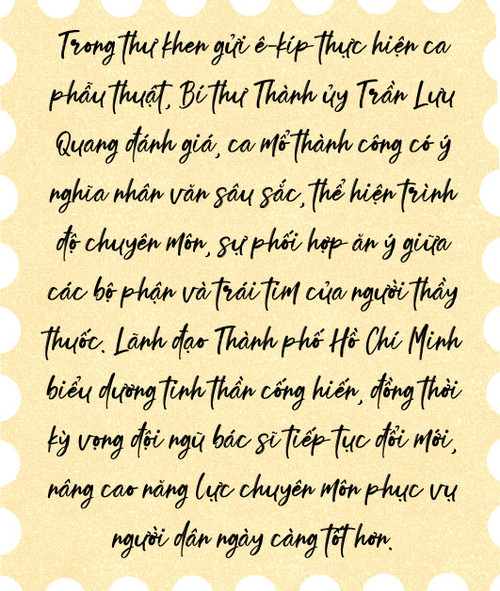 Trong thư khen gửi ê-kíp thực hiện ca
phẫu thuật, Bí thư Thành ủy Trần Lưu
Quang đánh giá, ca mổ thành công có ý
nghĩa nhân văn sâu sắc, thể hiện trình
độ chuyên môn, sự phối hợp ăn ý giữa
các bộ phận và trái tim của người thầy
thuốc. Lãnh đạo Thành phố Hồ Chí Minh
biểu dương tinh thần cống hiến, đồng thời
kỳ vọng đội ngũ bác sĩ tiếp tục đổi mới,
nâng cao năng lực chuyên môn phục vụ
người dân ngày càng tốt hơn.